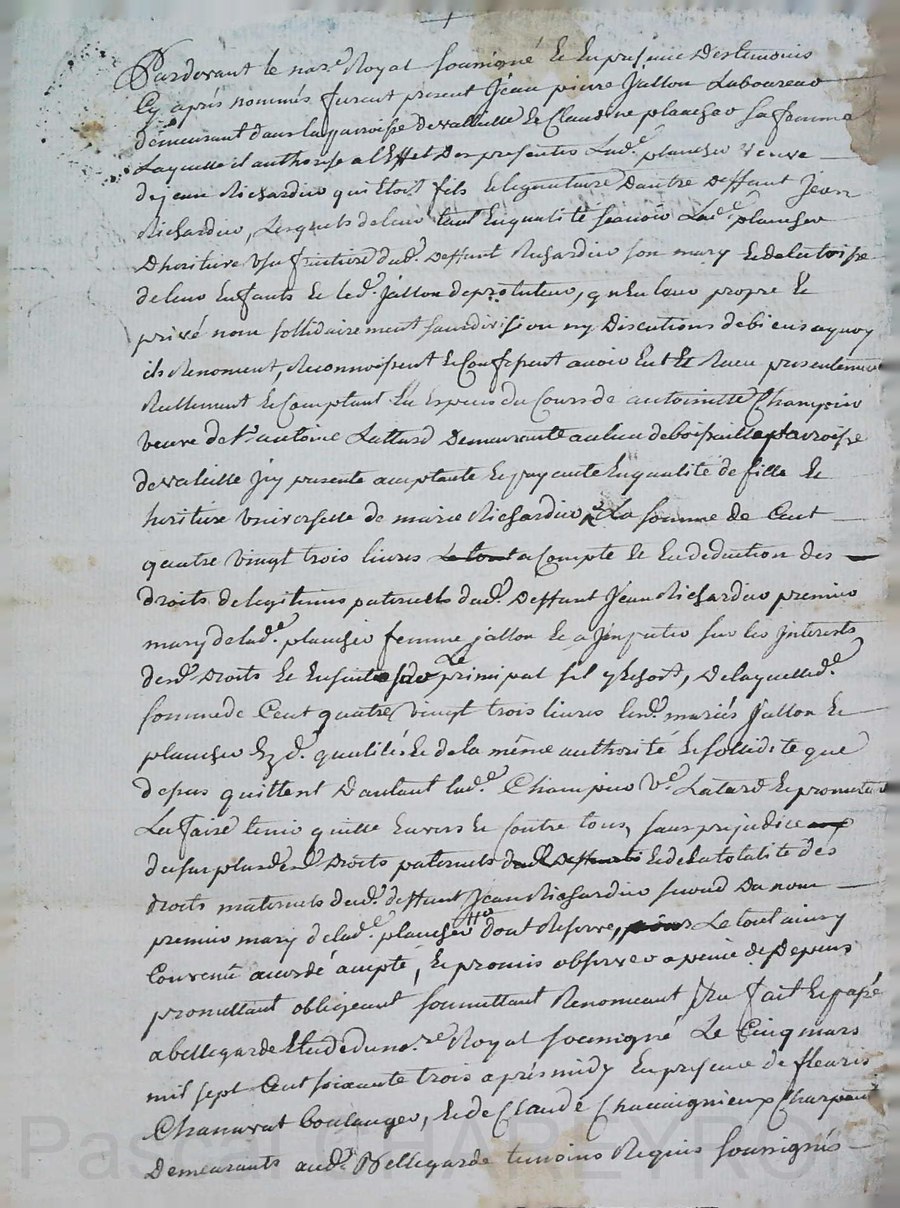 Pardevant le nore Royal soussigné et En presence Des temoins
Cy aprés nommés furent present Jéan pierre Jallon Laboureur
demeurant dans la parroisse De valeille Et Claudine plancher sa femme
Laquelle il authorise a l'Effet Des presentes Lade plancher veuve
de jean Richardier qui Etoit fils et legitimaire D'autre Deffunt Jéan
Richardier, Lesquels de leur En qualité scavoir Lade plancher
D'heritiere Usufruitiere dud. Deffunt Richardier son mary Et
de leur Enfants Et led. Jallon de protuteur, qu'En leur propre Et
privé nom sollidairement sans division ny Discutions de biens a quoy
ils Renoncent, Reconnoissent Et Confessent avoir Eut Et Receu presentement
Reellement Et Comptant En Especes du Cours de antoinette Champier
veuve de Sr antoine Lattard Demeurante au lieu de boisrailles parroisse
de valeille Jcy presente acceptante Et payante En qualité de fille Et
heritiere Universelle de marie Richardier, La somme de Cent
quatre vingt trois livres a Compte Et En deduction des
droits de legitimes paternels dud. Deffunt Jéan Richardier premier
mary de lade plancher femme jallon Et a Jmputer sur les Jnterests
desd. Droits Et Ensuite sur Le principal sil y Echoit, De laquelle de
somme de Cent quatre vingt trois livres lesd. mariés Jallon Et
plancher Ez d. qualités Et de la même authorité Et sollidité que
depus quittent D'autant lade Champier ve Latard Et promettent
La faire tenir quitte Envers Et Contre tous, sans prejudice
du surplus desd. Droits paternels Et de la totalité des
droits maternels dud. deffunt Jéan Richardier second Du nom
premier mary de lade plancher dont Reserve, Le tout ainsy
Convenu accordé accepté, Et promis observer a peine de Depens
promettant obligeant soumettant Renonceant fait Et passé
a bellegarde Etude du nore Royal soussigné Le Cinq mars
mil sept Cent soixante trois aprés midy En presence de fleuris
Chanavat boulanger, Et de Claude Chavaignieux Charpent
Demeurants aud. Bellegarde temoins Requis soussignés
Pascal CHAPEYRON